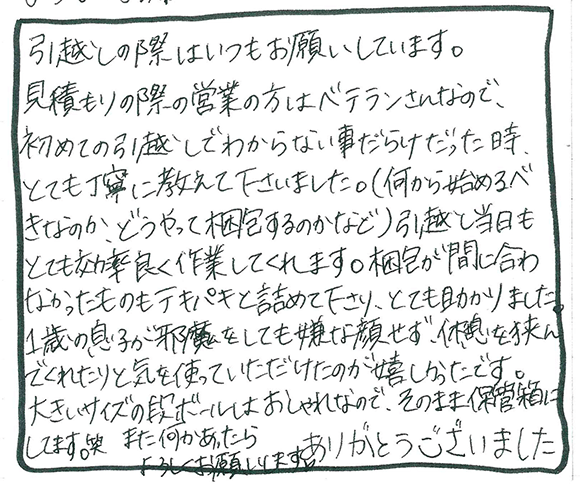 引越しの際はいつもお願いしています。
見積もりの際の営業の方はベテランさんなので、
初めての引越しでわからない事だらけだった時、
とても丁寧に教えて下さいました。(何から始めるべ
きなのか、どうやって梱包するのかなど)引越し当日も
とても効率良く作業してくれます。梱包が間に合わ
なかったものもテキパキと詰めて下さり、とても助かりました。
1歳の息子が邪魔をしても嫌な顔せず、休憩を挟ん
でくれたりと気を使っていただけたのが嬉しかったです。
大きいサイズの段ボールはおしゃれなので、そのまま保管箱に
してます。笑 また何かあったら
よろしくお願いします。
ありがとうございました